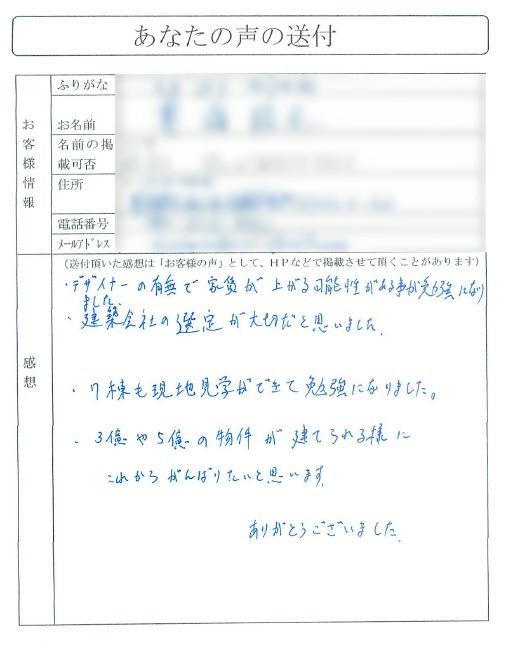 あなたの声の送付
お客様情報
ふりがな
お名前
名前の掲
載可否
住所
電話番号
メールアドレス
感想
(送付頂いた感想は「お客様の声」として、HPなどで掲載させて頂くことがあります)
・デザイナーの有無で家賃が上がる可能性がある事が勉強になり
ました。
・建築会社の選定が大切だと思いました。
・7棟も現地見学ができて勉強になりました。
・3億や5億の物件が建てられる様に
これからがんばりたいと思います。
ありがとうございました。